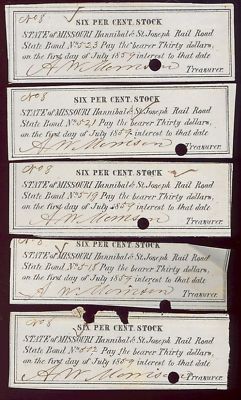 No 8
SIX PER CENT. STOCK
STATE of MISSOURI Hannibal & St. Joseph Rail Road
State Bond No 523 Pay the bearer Thirty dollars,
on the first day of July 1859 interest to that date
A W Morrison Treasurer.
No 8
SIX PER CENT. STOCK
STATE of MISSOURI Hannibal & St. Joseph Rail Road
State Bond No 521 Pay the bearer Thirty dollars,
on the first day of July 1859 interest to that date
A W Morrison Treasurer.
No 8
SIX PER CENT. STOCK
STATE of MISSOURI Hannibal & St. Joseph Rail Road
State Bond No 519 Pay the bearer Thirty dollars,
on the first day of July 1859 interest to that date
A W Morrison Treasurer.
No 8
SIX PER CENT. STOCK
STATE of MISSOURI Hannibal & St. Joseph Rail Road
State Bond No 518 Pay the bearer Thirty dollars,
on the first day of July 1859 interest to that date
A W Morrison Treasurer.
No 8
SIX PER CENT. STOCK
STATE of MISSOURI Hannibal & St. Joseph Rail Road
State Bond No 502 Pay the bearer Thirty dollars,
on the first day of July 1859 interest to that date
A W Morrison Treasurer.